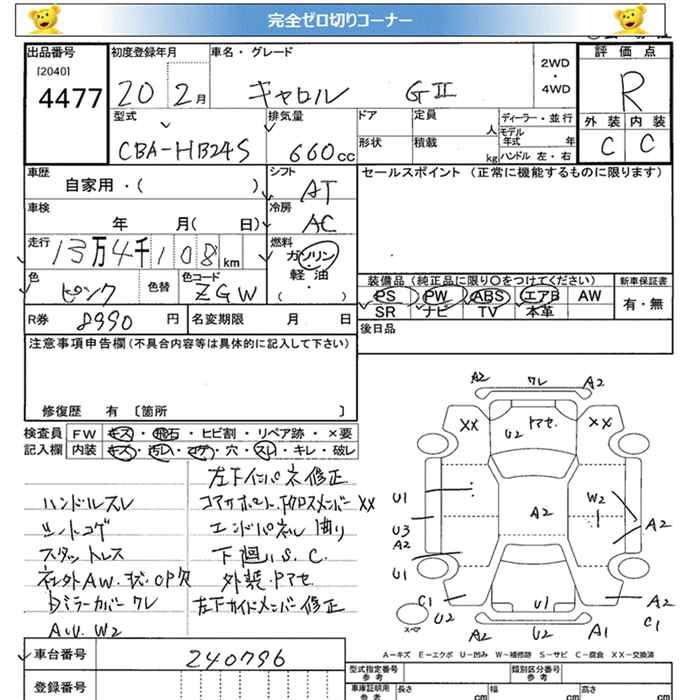 完全ゼロ切りコーナー
出品番号 初度登録年月 車名・グレード 2WD・4WD 評価点
[2040]
4477 20 2月 キャロル GⅡ R
型式 排気量 ドア 定員 人 ディーラー・並行 外装 内装
CBA-HB24S 660cc 形状 積載 kg モデル年式 年 ハンドル 左・右 C C
車歴 シフト セールスポイント (正常に機能するものに限ります)
自家用・( ) AT
車検 冷房
年 月( 日) AC
走行 燃料
13万4千108km ガソリン
軽油
( ・ )
色 色替 色コード 装備品 (純正品に限り○をつけてください) 新車保証書
ピンク ZGW PS PW ABS エアB AW 有・無
SR ナビ TV 本革
R券 8990 円 名変期限 月 日 後日品
注意事項申告欄 (不具合内容等は具体的に記入して下さい)
修復歴 有 〔箇所 〕
検査員 FW キズ・飛石・ヒビ割・リペア跡・×要
記入欄 内装 キズ・汚レ・コゲ・穴・スレ・キレ・破レ
左下インパネ修正
ハンドルスレ コアサポート.下クロスメンバーXX
シートコゲ エンドパネル曲り
スタットレス 下廻りS.C.
社外AW.キズ・CP欠 外装.Pアセ
Dミラーカバーワレ 左下サイドメンバー修正
AW.W2
A2 ワレ A2
XX U2 アセ XX
U1 W2
U3 A2 A2
A2
U1
C1 U1 A2
U2 A2 U2 A1 C1
スペア
A-キズ E-エクボ U-凹み W-補修跡 S-サビ C-腐食 XX-交換済
車台番号 240796
登録番号
型式指定番号 参考 類別区分番号 参考
車庫証明用 参考 長さ cm 幅 cm 高さ cm